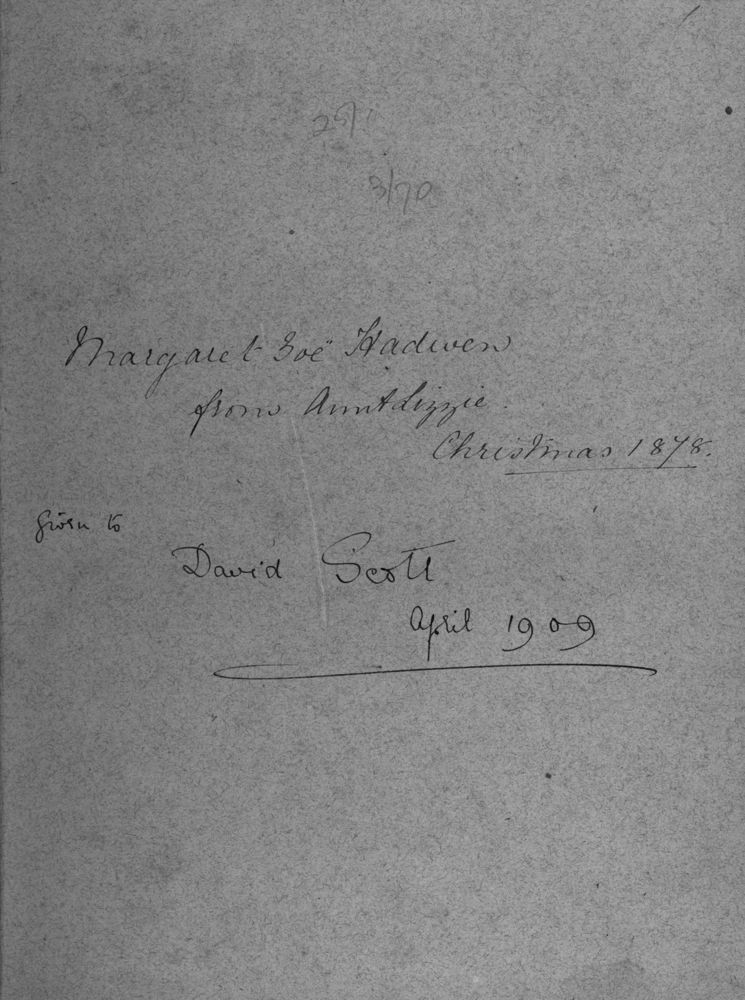 25/
3/70
Margaret Zoë Hadwen
from Aunt Lizzie.
Christmas 1878.
Given to
David Scott
April 1909